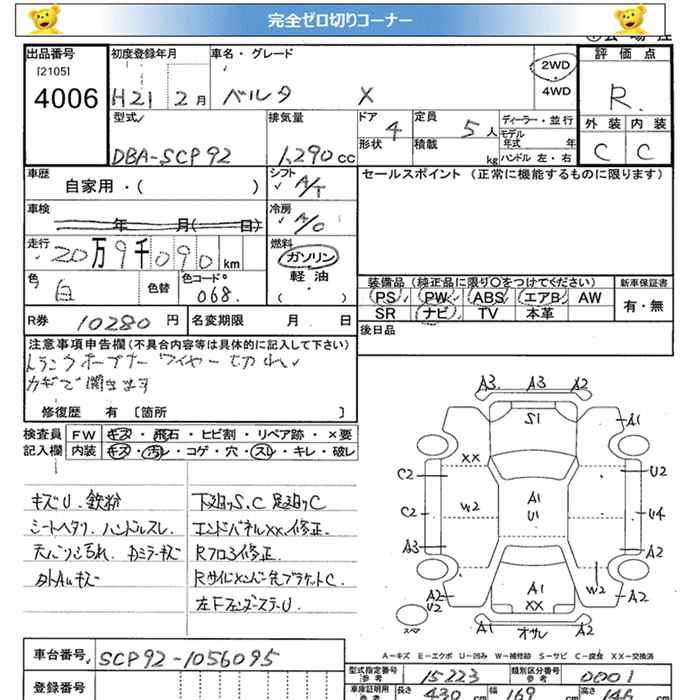 完全ゼロ切りコーナー
出品番号
[2105]
4006
初度登録年月
H21 2月
車名・グレード
ベルタ X
2WD
4WD
評価点
R
外装 内装
C C
型式
DBA-SCP92
排気量
1,290cc
ドア
4
形状
定員
5人
積載
kg
ディーラー・並行
モデル
年式 年
ハンドル 左・右
車歴
自家用・( )
シフト
A/T
セールスポイント (正常に機能するものに限ります)
車検
年 月( 日)
冷房
A/C
走行
20万9千090km
燃料
ガソリン
軽油
( )
色
白
色替
色コード
068
装備品 (純正品に限り○をつけてください)
新車保証書
PS PW ABS エアB AW
有・無
SR ナビ TV 本革
R券 10280円
名変期限 月 日
後日品
注意事項申告欄(不具合内容等は具体的に記入して下さい)
トランクオープナー ワイヤー切れ
カギで開きます
修復歴 有 [箇所 ]
検査員
記入欄
FW キズ・飛石・ヒビ割・リペア跡・×要
内装 キズ・汚レ・コゲ・穴・スレ・キレ・破レ
キズU.鉄粉
シートヘタリ.ハンドルスレ.
天バリシ汚れ.カミラーキズ
外Auキズ
下廻りS.C 足廻りC
エンドパネルXX.修正.
Rフロア修正.
左Fフェンダーステーu.
A3 A3 A2
S1
A1
XX
C2
U2
W2
A1
U1
C2
U4
A3
A2
W2
A1
XX
A2
U2
A2
スペア
A1 オサレ A2
A－キズ E－エクボ U－凹み W－補修跡 S－サビ C－腐食 XX－交換済
車台番号
SCP92-1056095
登録番号
型式指定番号
参考
15223
類別区分番号
参考
0001
車庫証明用
参考
長さ
430
cm
幅
169
cm
高さ
cm